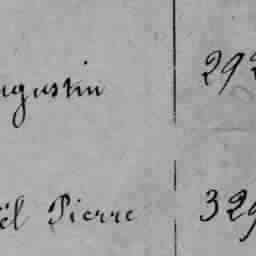 ugustin 292
ël Pierre 329